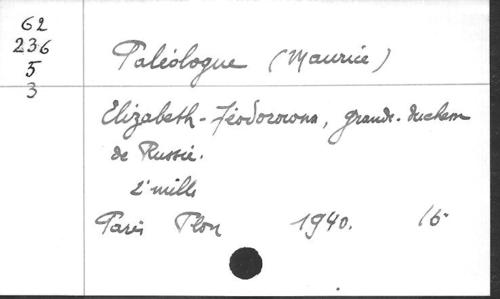 62
236
5
3
Paléologue (Maurice)
Elizabeth-Féodorowna, grande-duchesse
de Russie.
2e mille
Paris Plon 1940. 16°